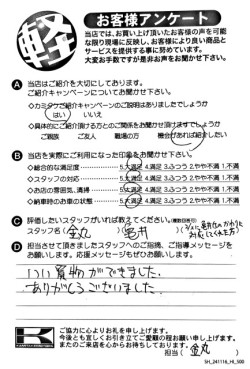 軽
お客様アンケート
当店では、お買い上げ頂いたお客様の声を可能
な限り現場に反映し、お客様により良い商品と
サービスを提供する事に努めています。
大変お手数ですが是非お声をお聞かせ下さい。
A 当店はご紹介を大切にしております。
ご紹介キャンペーンについてお聞かせ下さい。
◇カミタケご紹介キャンペーンのご説明はありましたでしょうか
はい いいえ
◇具体的にご紹介頂ける方とのご関係をお聞かせ頂けますでしょうか
ご親族 ご友人 職場の方 機会があれば紹介したい
B 当店を実際にご利用になった印象をお聞かせ下さい。
◇総合的な満足度 5.大満足 4.満足 3.ふつう 2.やや不満 1.不満
◇スタッフの対応 5.大満足 4.満足 3.ふつう 2.やや不満 1.不満
◇お店の雰囲気、清掃 5.大満足 4.満足 3.ふつう 2.やや不満 1.不満
◇納車時のお車の状態 5.大満足 4.満足 3.ふつう 2.やや不満 1.不満
C 評価したいスタッフがいれば教えてください。(複数回答可)
スタッフ名( 金丸 )( 亀井 )(
D 担当させて頂きましたスタッフへのご指摘、ご指導メッセージを
お願いします。応援メッセージもぜひお願いします。
いい買物ができました。
ありがとうございました。
ご協力に心よりお礼を申し上げます。
今後とも宜しくお引き立てご愛顧の程お願い申し上げます。
またのご来店を心からお待ちしております。
担当( 金丸 )
SH_241116_HI_500